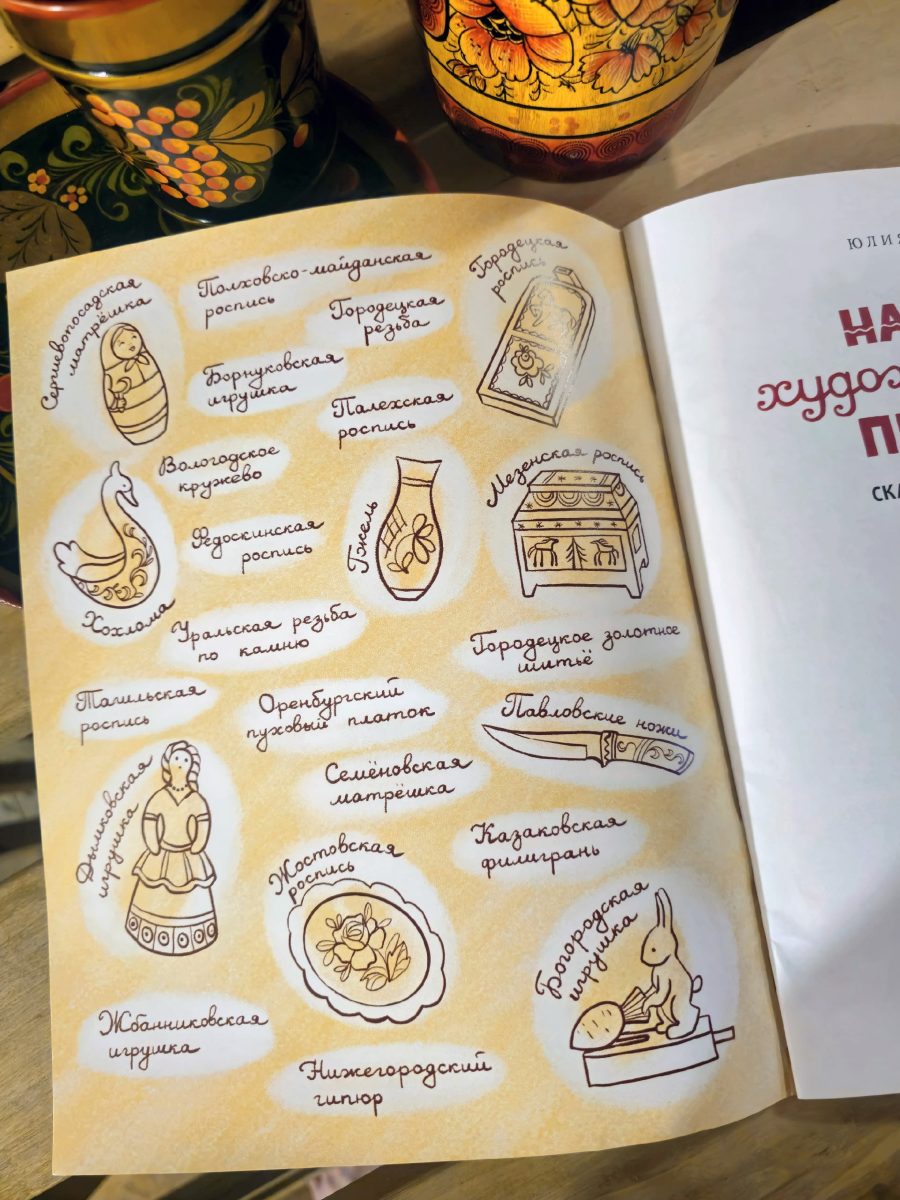 Сергиевопосадская
матрёшка
Полховско-майданская
роспись
Городецкая
роспись
Городецкая
резьба
Борнуковская
игрушка
Палехская
роспись
Вологодское
кружево
Мезенская роспись
Хохлома
Федоскинская
роспись
Гжель
Уральская резьба
по камню
Городецкое золотное
шитьё
Тагильская
роспись
Оренбургский
пуховый платок
Павловские ножи
Семёновская
матрёшка
Дымковская
игрушка
Жостовская
роспись
Казаковская
филигрань
Богородская
игрушка
Жбанниковская
игрушка
Нижегородский
гипюр
ЮЛИЯ